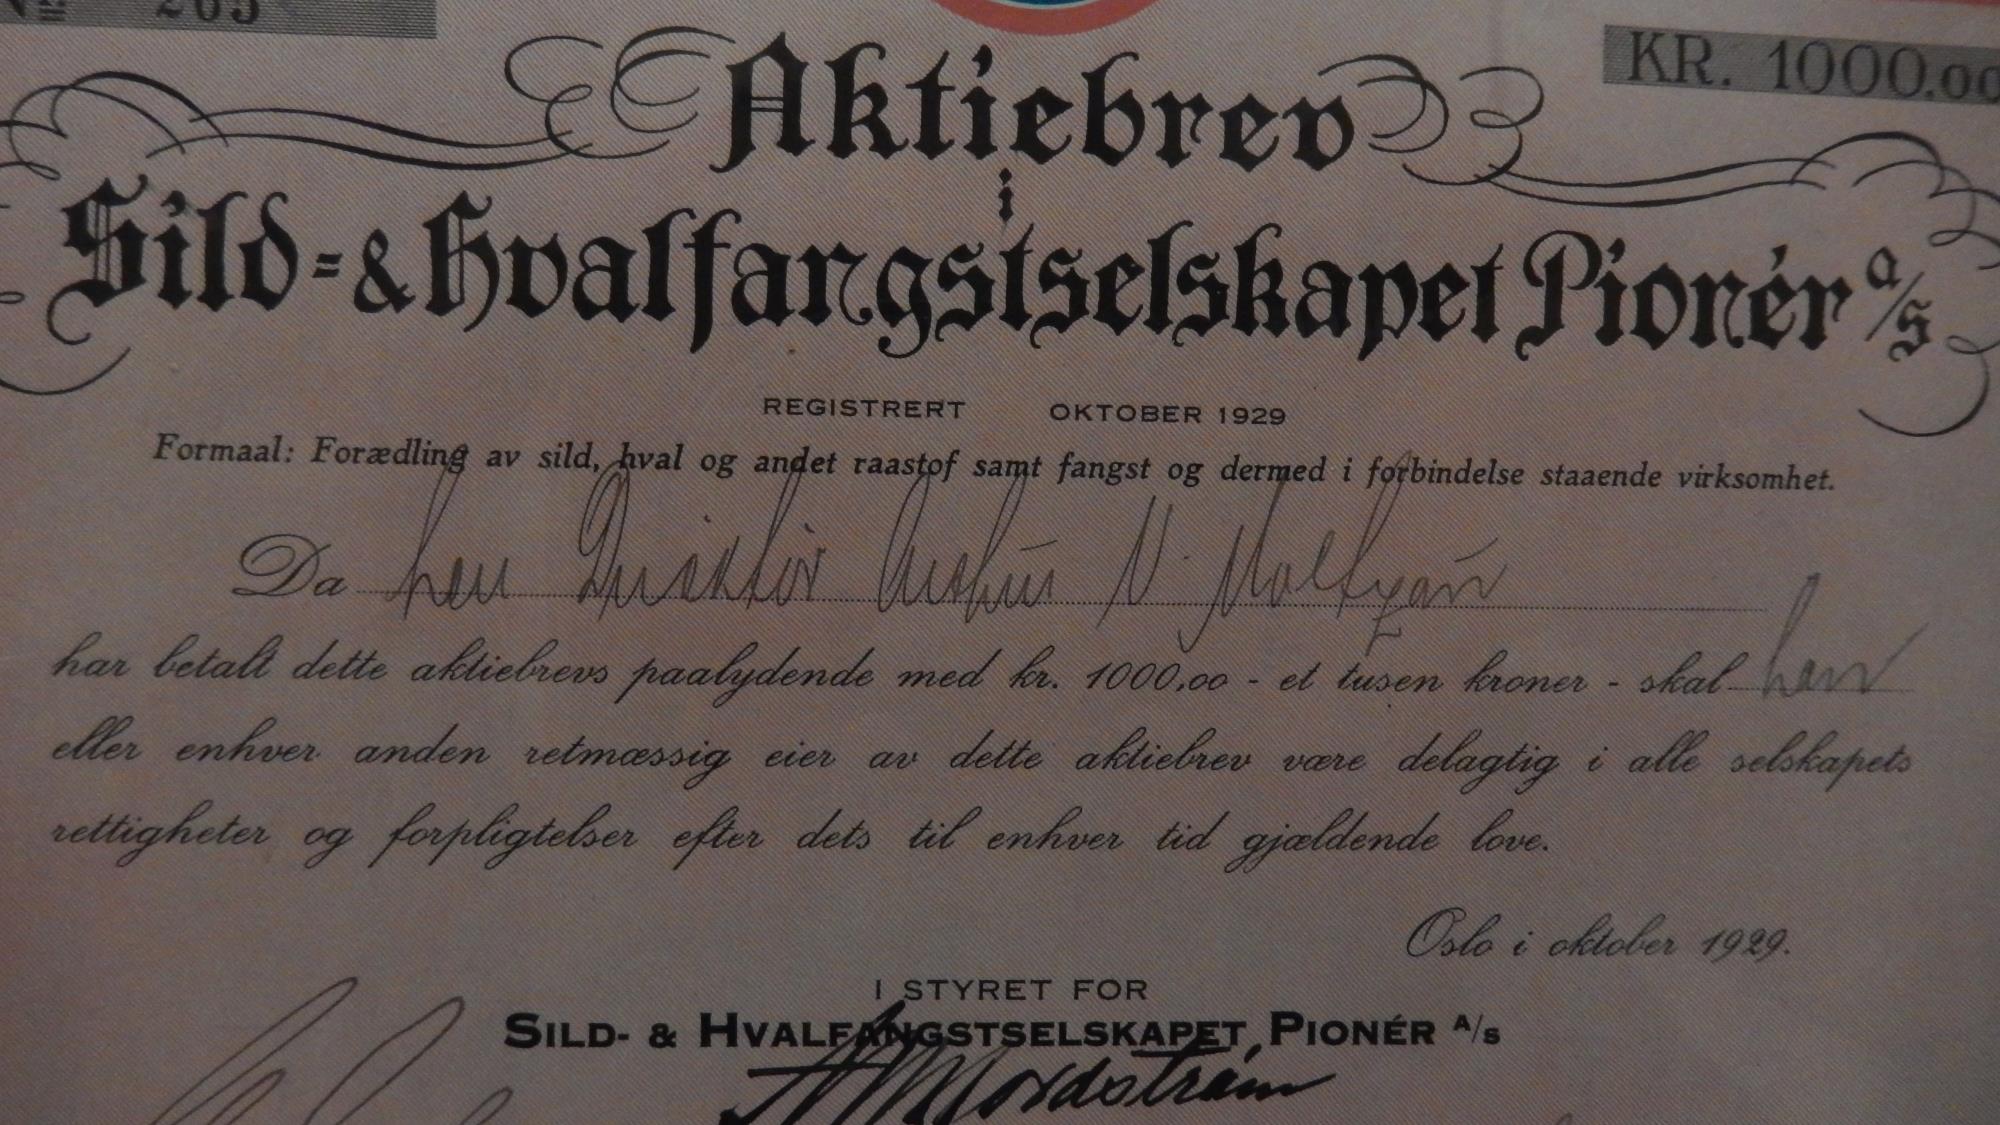 No 265
KR. 1000.00
Aktiebrev
i
Sild- & Hvalfangstselskapet Pionér A/S
REGISTRERT OKTOBER 1929
Formaal: Forædling av sild, hval og andet raastof samt fangst og dermed i forbindelse staaende virksomhet.
Da herr Direktør Arthur N.
har betalt dette aktiebrevs paalydende med kr. 1000,00 - et tusen kroner - skal han
eller enhver anden retmæssig eier av dette aktiebrev være delagtig i alle selskapets
rettigheter og forpligtelser efter dets til enhver tid gjældende love.
Oslo i oktober 1929.
I STYRET FOR
SILD- & HVALFANGSTSELSKAPET PIONÉR A/S
Nordström